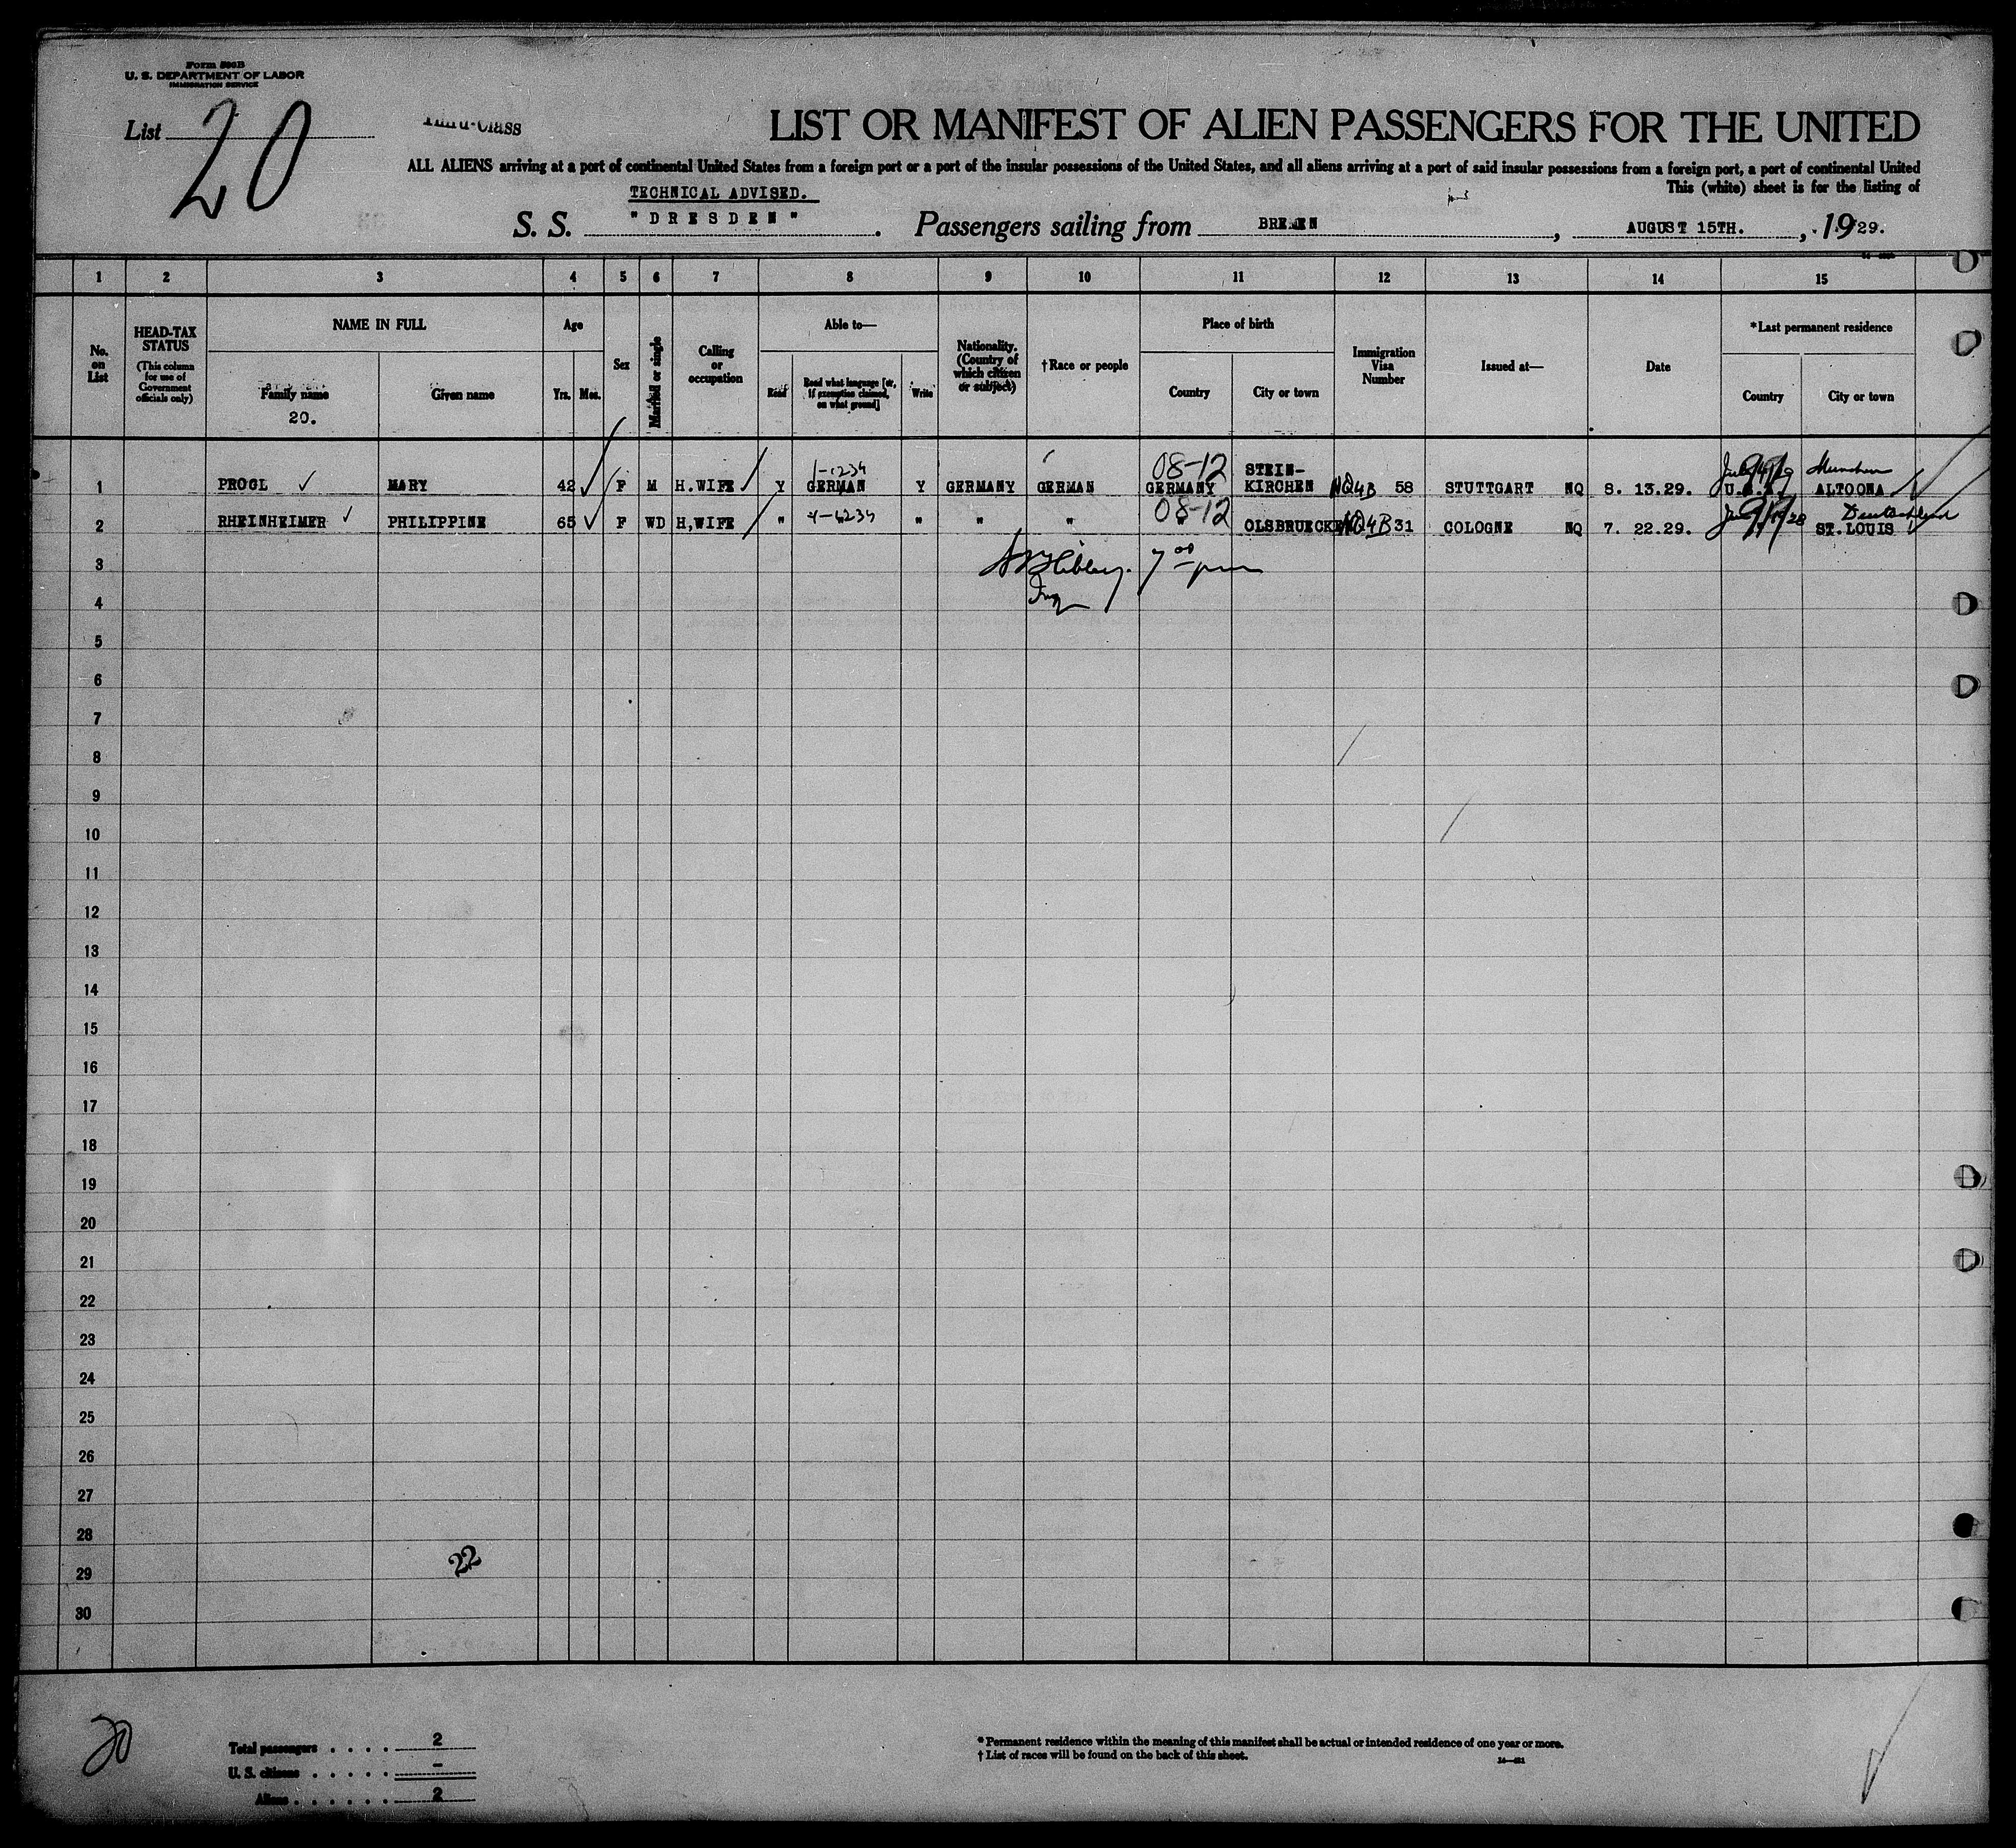 Form 500B
U. S. DEPARTMENT OF LABOR
IMMIGRATION SERVICE
List 20
Third-Class
LIST OR MANIFEST OF ALIEN PASSENGERS FOR THE UNITED
ALL ALIENS arriving at a port of continental United States from a foreign port or a port of the insular possessions of the United States, and all aliens arriving at a port of said insular possessions from a foreign port, a port of continental United
This (white) sheet is for the listing of
TECHNICAL ADVISED.
S. S. "DRESDEN". Passengers sailing from BREMEN, AUGUST 15TH., 1929.
1 2 3 4 5 6 7 8 9 10 11 12 13 14 15
No. on List
HEAD-TAX STATUS
(This column for use of Government officials only)
NAME IN FULL
Family name
20.
Given name
Age
Yrs. Mos.
Sex
Married or single
Calling or occupation
Able to—
Read
Read what language [or, if exemption claimed, on what ground]
Write
Nationality. (Country of which citizen or subject)
†Race or people
Place of birth
Country
City or town
Immigration Visa Number
Issued at—
Date
*Last permanent residence
Country
City or town
1 PROGL ✓ MARY 42 ✓ F M H.WIFE ✓ Y GERMAN Y GERMANY GERMAN 08-12 GERMANY STEIN-KIRCHEN NQ4B 58 STUTTGART NQ 8. 13.29. U.S.A. Munchen ALTOONA
2 RHEINHEIMER ✓ PHILIPPINE 65 ✓ F WD H,WIFE " " " " " 08-12 " OLSBRUECKEN NQ4B 31 COLOGNE NQ 7. 22.29. Deutschland ST.LOUIS
3
4
5
6
7
8
9
10
11
12
13
14
15
16
17
18
19
20
21
22
23
24
25
26
27
28
29
30
22
20
Total passengers . . . . 2
U. S. citizens . . . . . -
Aliens . . . . . . 2
* Permanent residence within the meaning of this manifest shall be actual or intended residence of one year or more.
† List of races will be found on the back of this sheet.